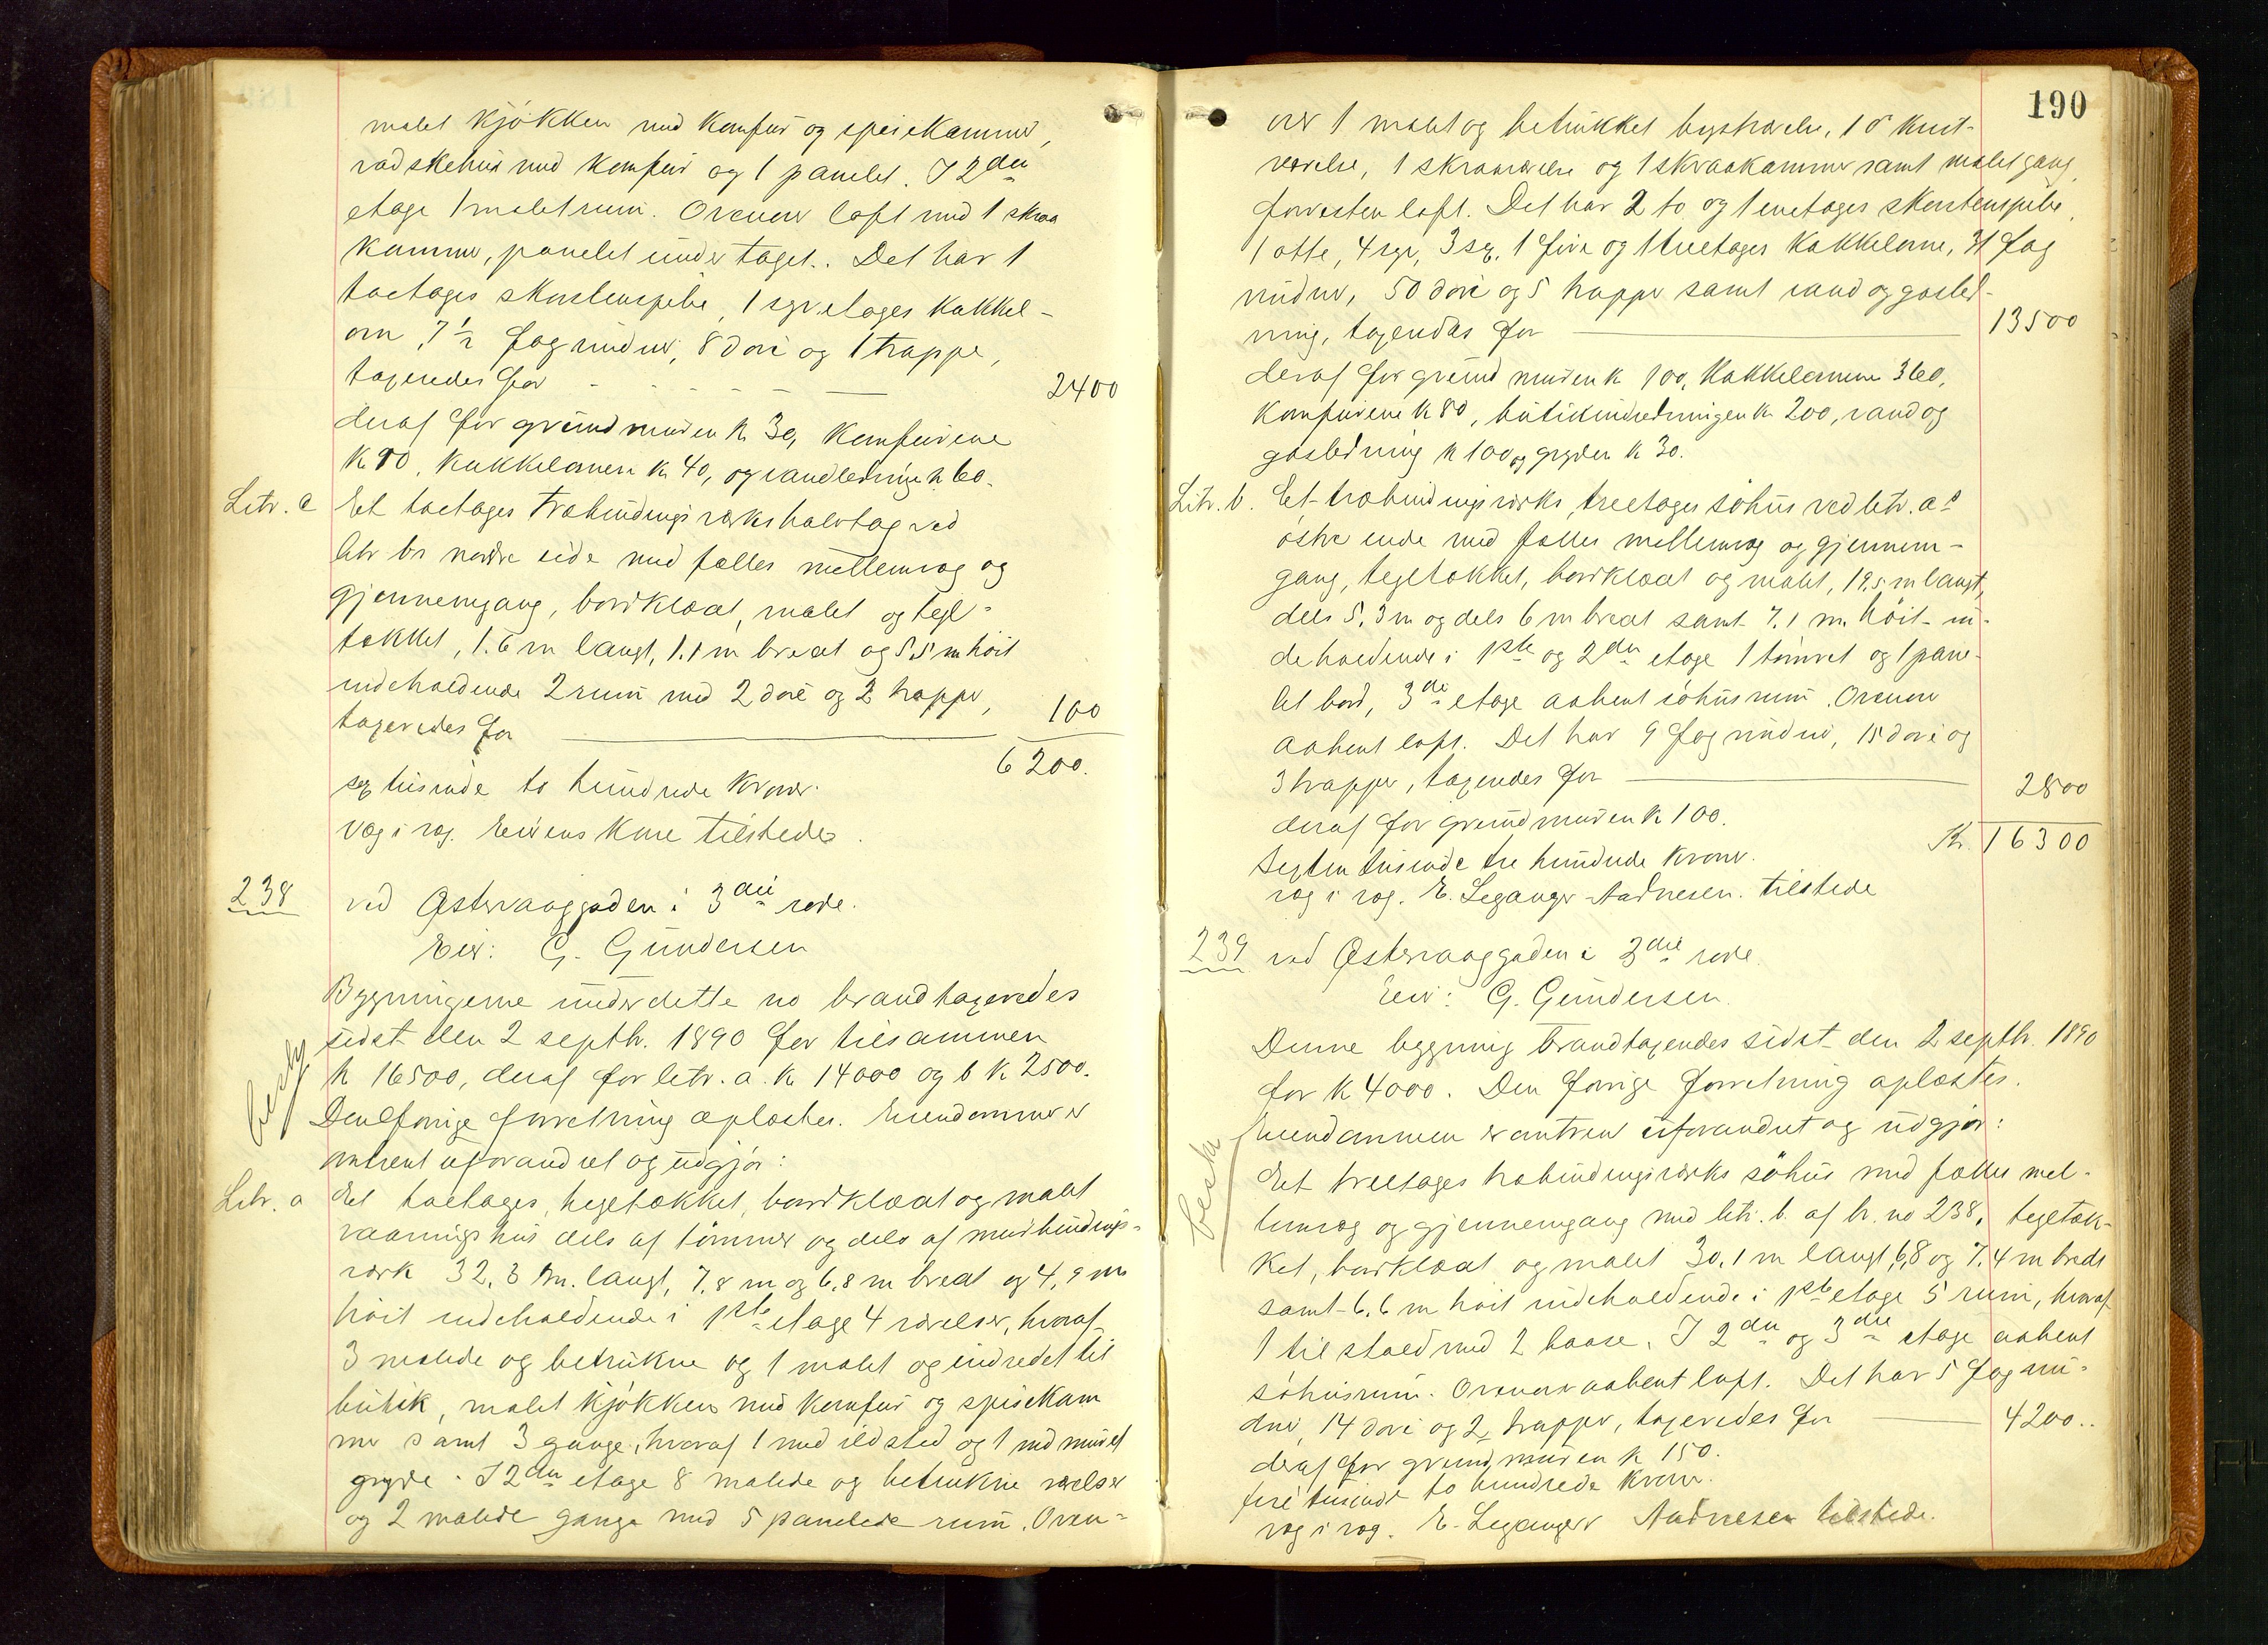 malet kjøkken med komfur og spisekammer,
vadskehus med komfur og 1 panelet. I 2den
etage 1 malet rum. Ovenover loft med 1 skraa
kammer, panelet under taget. Det har 1
toetages skorstenspibe, 1 syvetages kakkel-
ovn, 7 1/2 fag vinduer, 8 döre og 1 trappe,
taxeredes for - - - - - 2400
deraf for grundmuren k 30, komfurene
k 80, kakkelovnen k 40, og vandledning k 60.
Litr. c Et toetages træbindingsværks halvtag ved
litr b's nordre side med fælles mellemvæg og
gjennemgang, bordklædt, malet og tegl-
tækket, 1.6 m langt, 1.1 m bredt og 5.5 m höit
indeholdende 2 rum med 2 döre og 2 trapper,
taxeredes for 100
6200.
sex tusinde to hundrede kroner.
Væg i væg. Eierens kone tilstede.
238 ved Østervaaggaden i 3die rode.
Eier: G. Gundersen
Bygningerne under dette no brandtaxeredes
sidst den 2 septbr. 1890 for tilsammen
k 16500, deraf for litr. a. k 14000 og b k 2500.
Den forrige forretning oplæstes. Eiendommen er
omtrent uforandret og udgjör:
Litr. a Et toetages, tegltækket, bordklædt og malet
vaaningshus dels af tömmer og dels af murbindings-
værk 32.3 m. langt, 7.8 m og 6.8 m bredt og 4.9 m
höit indeholdende i 1ste etage 4 værelser, hvoraf
3 malede og betrukne og 1 malet og indredet til
butik, malet kjøkken med komfur og spisekam
mer samt 3 gange, hvoraf 1 med ildsted og 1 med muret
gryde. I 2den etage 8 malede og betrukne værelser
og 2 malede gange med 5 panelede rum. Oven-
190
over 1 malet og betrukket
værelse, 1 skraaværelse og 1 skraakammer samt malet gang,
forresten loft. Det har 2 to og 1 enetages skorstenspibe,
1 otte, 4 syv, 3 sex, 1 fire og 1 treetages kakkelovne, 31 fag
vinduer, 50 döre og 5 trapper samt vand og gasled-
ning, taxeredes for 13500
deraf for grundmuren k 100, kakkelovnene 360,
komfurene k 80, butikindredningen k 200, vand og
gasledning k 100 og gryden k 30.
Litr. b. Et træbindingsværks, treetages söhus ved litr. a's
östre ende med fælles mellemvæg og gjennem-
gang, tegltækket, bordklædt og malet, 19.5 m langt,
dels 5.3 m og dels 6 m bredt samt 7.1 m. höit in-
deholdende i 1ste og 2den etage 1 tömret og 1 pane-
let bod, 3die etage aabent söhusrum. Ovenover
aabent loft. Det har 9 fag vinduer, 15 döre og
3 trapper, taxeredes for 2800
deraf for grundmuren k 100.
Kr. 16300
Sexten tusinde tre hundrede kroner.
væg i væg. E. Leganger Aadnesen. tilstede
239 ved Østervaaggaden i 3die rode.
Eier: G. Gundersen.
Denne bygning brandtaxeredes sidst den 2 septbr. 1890
for k 4000. Den forrige forretning oplæstes.
Eiendommen er omtrent uforandret og udgjör:
Et treetages træbindingsværks söhus med fælles mel-
lemvæg og gjennemgang med litr. b. af br. no 238, tegltæk-
ket, bordklædt og malet 30.1 m langt, 6,8 og 7.4 m bredt
samt 6.6 m höit indeholdende i 1ste etage 5 rum, hvoraf
1 til stald med 2 baase. I 2den og 3die etage aabent
söhusrum. Ovenover aabent loft. Det har 5 fag vin-
duer, 14 döre og 2 trapper, taxeredes for 4200..
deraf for grundmuren k 150.
fire tusinde to hundrede kroner.
væg i væg. E. Leganger Aadnesen tilstede.